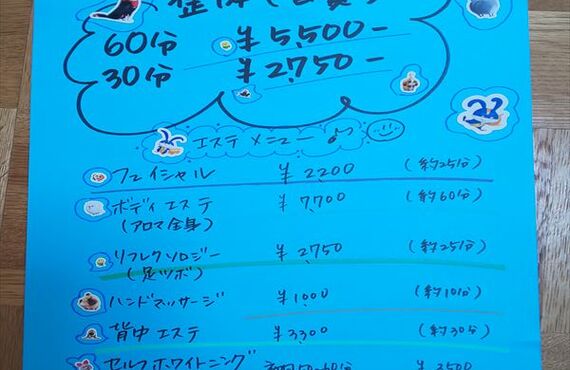 60分 ¥5,500-
30分 ¥2,750-
エステメニュー
フェイシャル ¥2200 (約25分)
ボディエステ ¥7,700 (約60分)
(アロマ全身)
リフレクソロジー ¥2,750 (約25分)
(足ツボ)
ハンドマッサージ ¥1,000 (約10分)
背中エステ ¥3,300 (約30分)
セルフホワイトニング